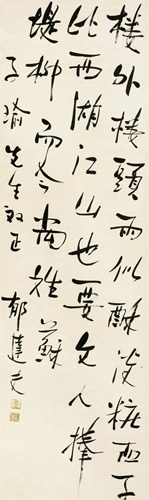 楼外楼頭雨似酥淡粧西子
比西湖江山也要文人捧
堤柳而今尚姓蘇
子瑜先生教正
郁達夫